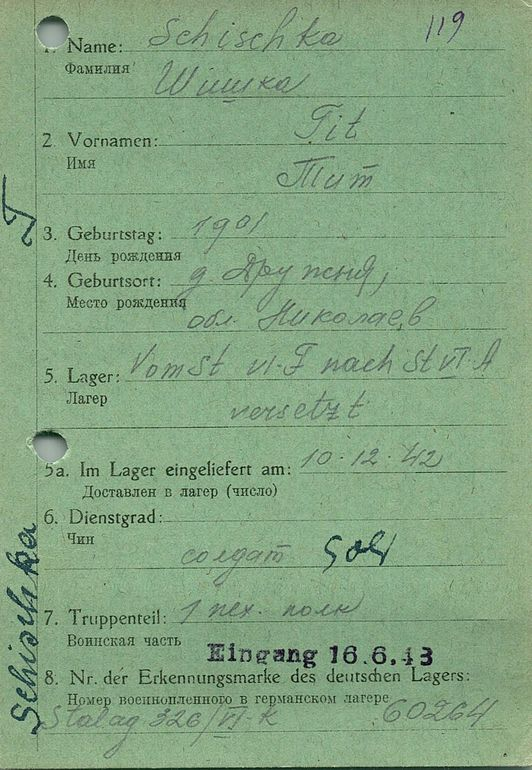 119
1. Name: Schischka
Фамилия Шишка
2. Vornamen: Tit
Имя Тит
3. Geburtstag: 1901
День рождения
4. Geburtsort: д. Дружня,
Место рождения
обл. Николаев
5. Lager: Vom St VI-F nach St VI A
Лагер versetzt
5a. Im Lager eingeliefert am: 10.12.42
Доставлен в лагер (число)
6. Dienstgrad:
Чин
солдат Sol
7. Truppenteil: 1 пех. полк
Воинская часть
Eingang 16.6.43
8. Nr. der Erkennungsmarke des deutschen Lagers:
Номер военнопленного в германском лагере
Stalag 326/VI-K 60264
T
Schischka